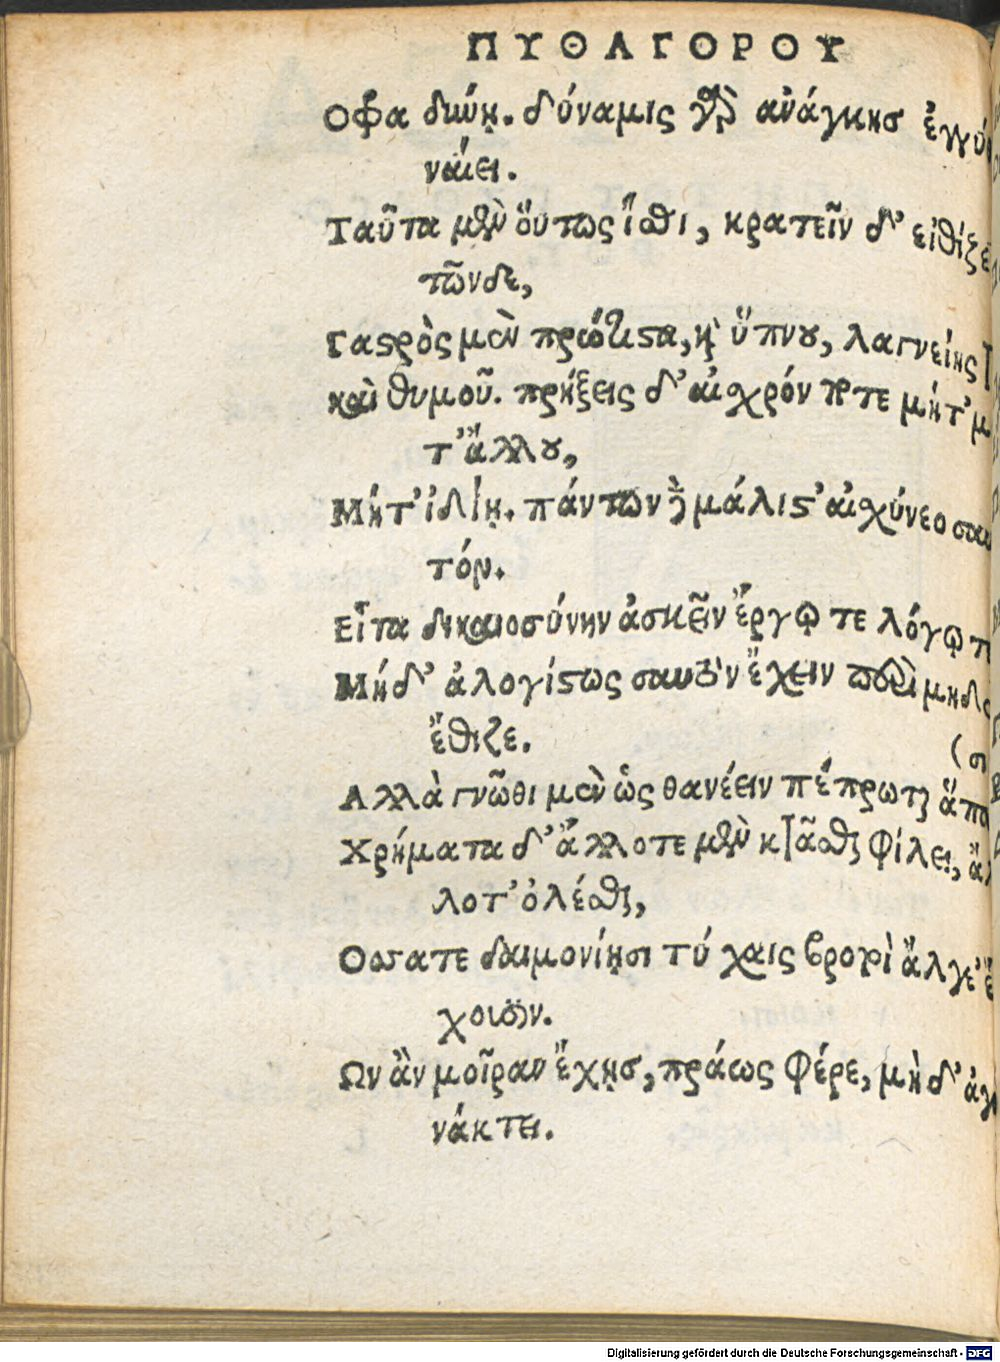 ΠΥΘΑΓΟΡΟΥ
Οφρα δύνῃ. δύναμις γὰρ ἀνάγκησ ἐγγύ
ναίει.
Ταῦτα μὲν ὅυτως ἴσθι, κρατεῖν δ' εἰθίζε
τῶνδε,
Γαστρὸς μὲν πρώτιστα, καὶ ὕπνου, λαγνείης τ
καὶ θυμοῦ. πρήξεις δ' αἰσχρόν ποτε μήτ' μ
τ' ἄλλου,
Μήτ' ἰδίῃ. πάντων δὲ μάλιστ' αἰσχύνεο σαυ
τόν.
Εἶτα δικαιοσύνην ἀσκεῖν ἔργῳ τε λόγῳ τ
Μήδ' ἀλογίστως σαυτὸν ἔχειν περὶ μηδε
ἔθιζε.
(σι
Αλλὰ γνῶθι μὲν ὡς θανέειν πέπρωται ἅπα
Χρήματα δ' ἄλλοτε μὲν κτᾶσθαι φίλει, ἄλ
λοτ' ὀλέσθαι,
Οσσατε δαιμονίῃσι τύχαις βροτοὶ ἄλγε' ἔ
χουσιν.
Ων ἂν μοῖραν ἔχῃσ, πράως φέρε, μὴ δ' ἀγα
νάκτει.
Digitalisierung gefördert durch die Deutsche Forschungsgemeinschaft - DFG